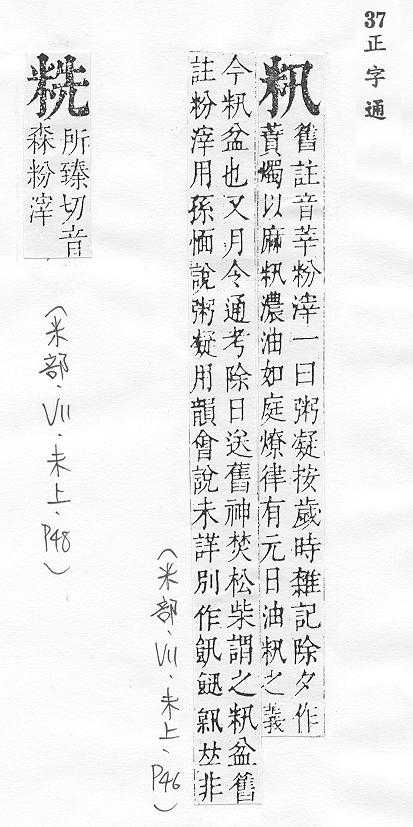 37正字通
籸
舊註音莘粉滓一曰粥凝按歲時雜記除夕作
蕡燭以麻籸濃油如庭燎律有元日油籸之義
今籸盆也又月令通考除日送舊神焚松柴謂之籸盆舊
註粉滓用孫愐說粥凝用韻會說未詳別作𩚏
非
(米部、VII、未上、P46)
粎
所臻切音
森粉滓
(米部、VII、未上、P48)